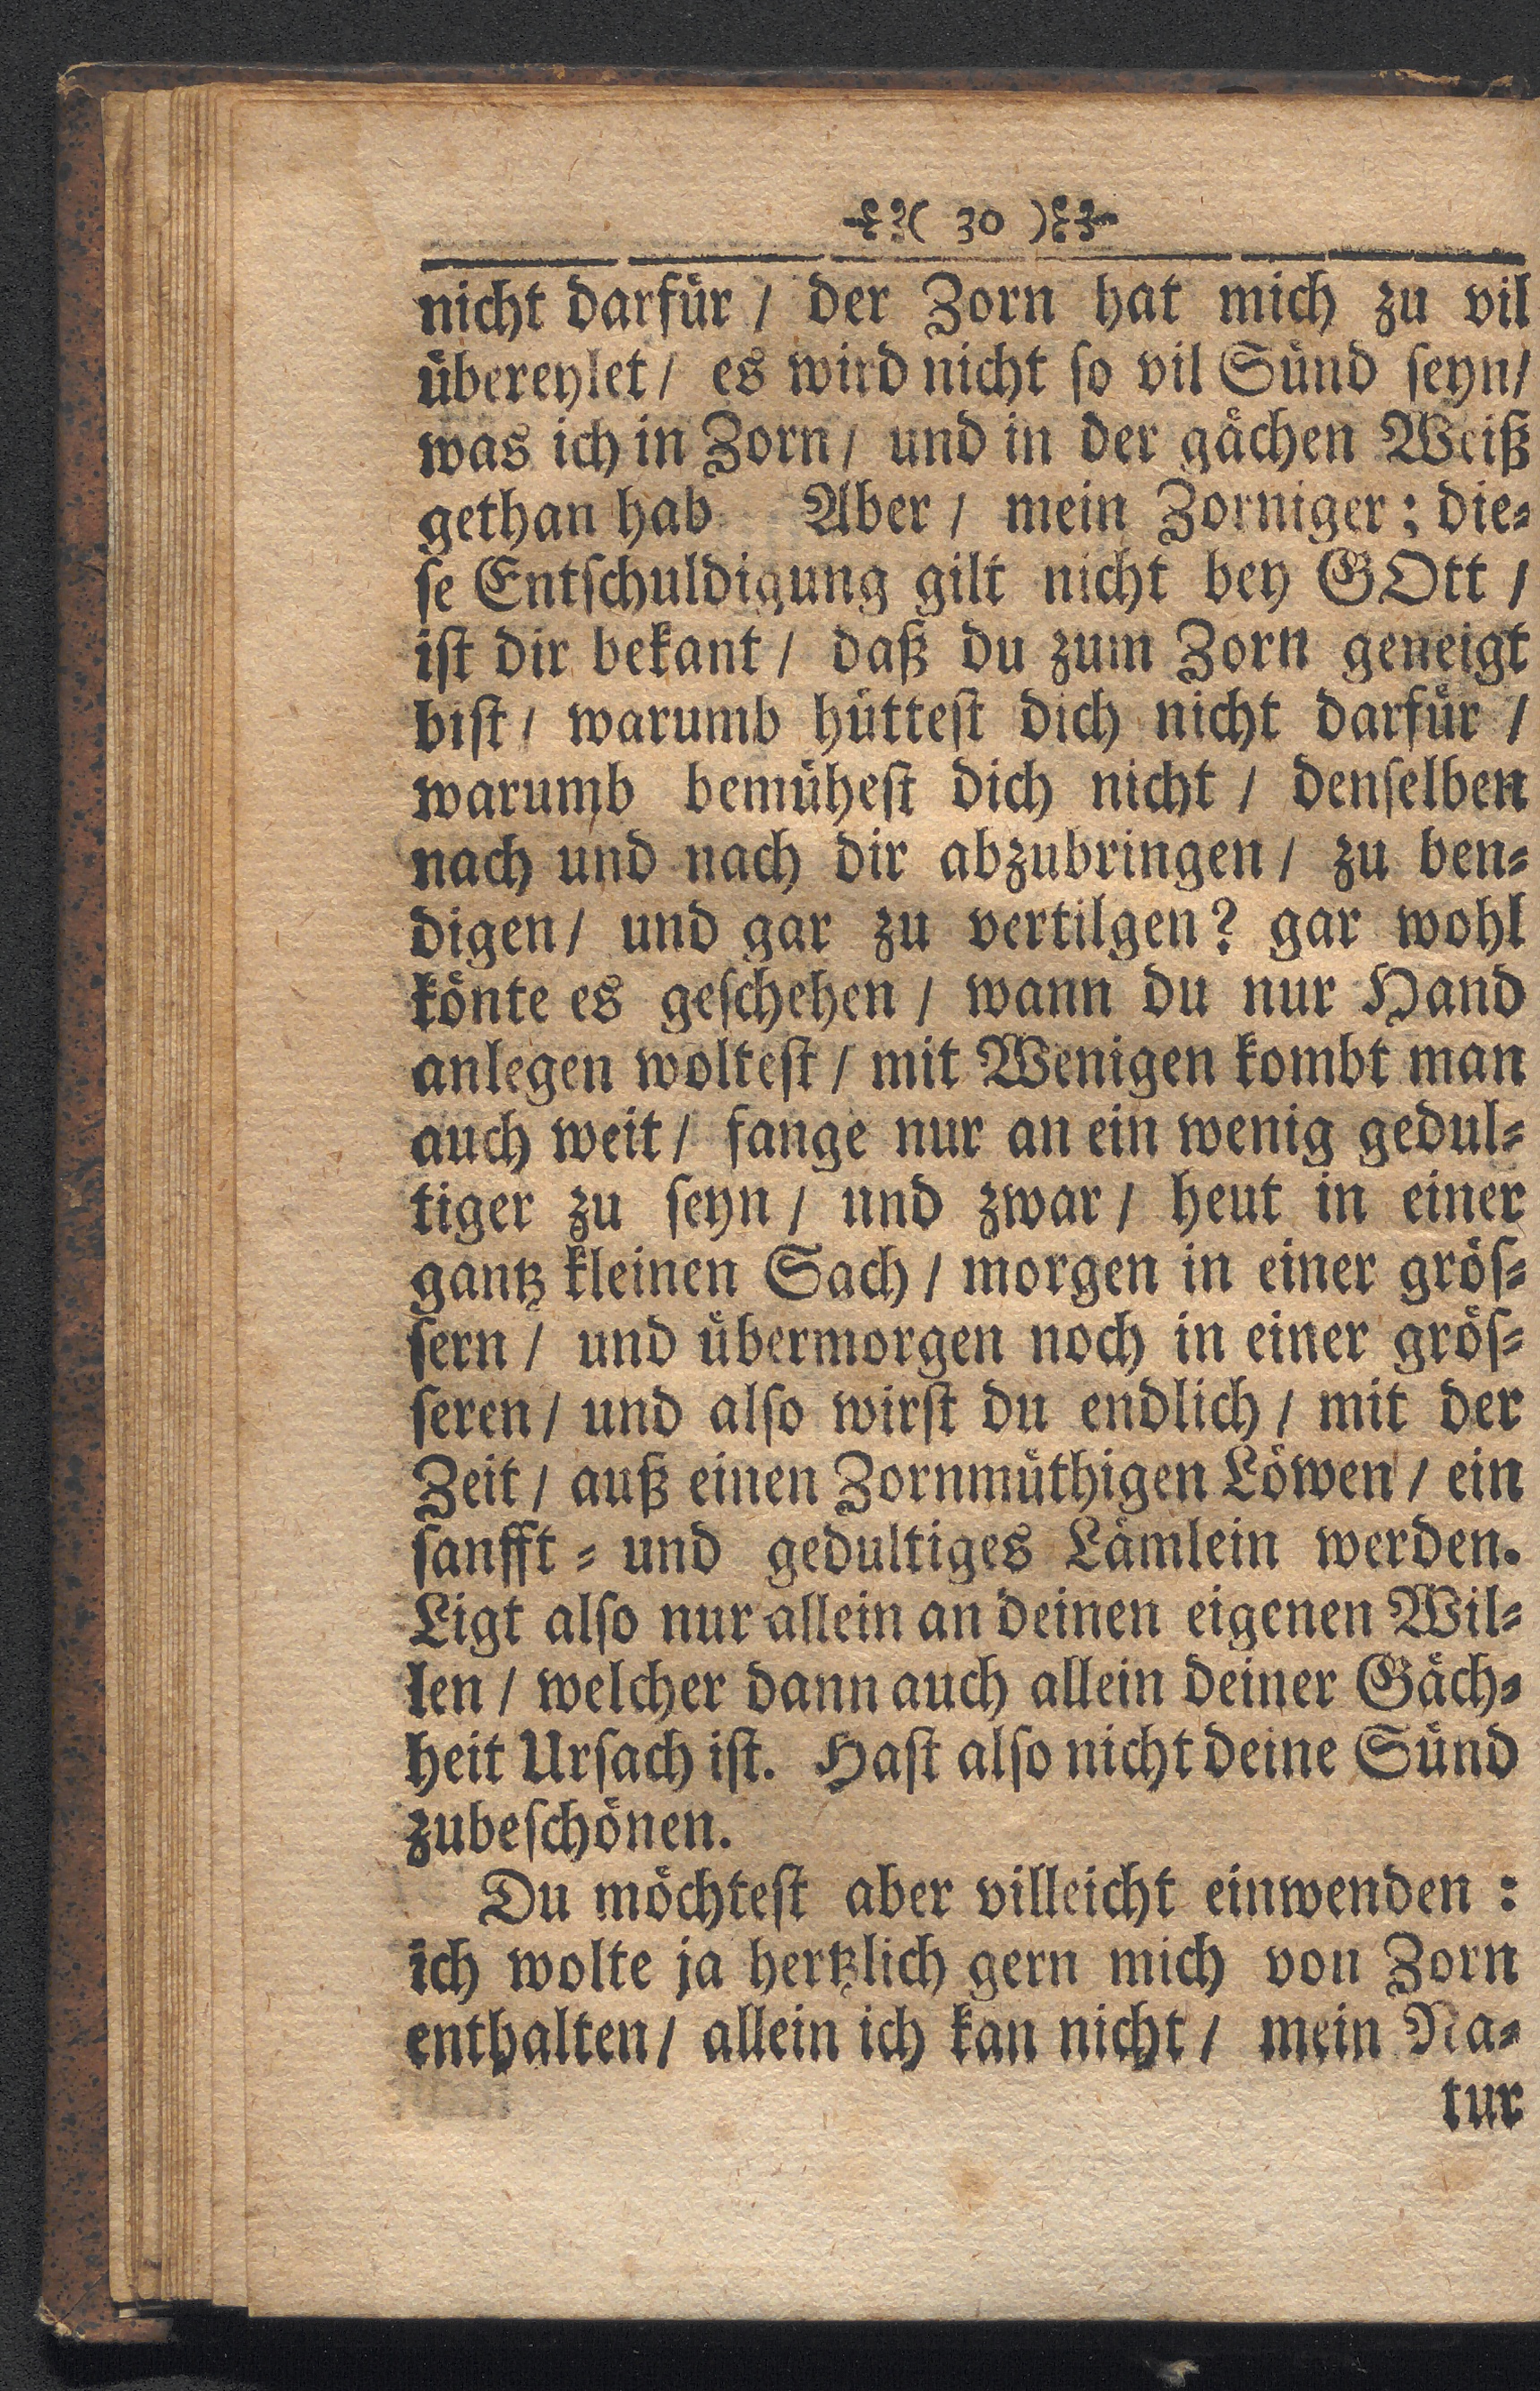 ( 30 )
nicht darfür / der Zorn hat mich zu vil
übereylet / es wird nicht ſo vil Sünd ſeyn/
was ich in Zorn / und in der gächen Weiß
gethan hab Aber / mein Zorniger; die⸗
ſe Entſchuldigung gilt nicht bey GOtt /
iſt dir bekant / daß du zum Zorn geneigt
biſt / warumb hütteſt dich nicht darfür /
warumb bemüheſt dich nicht / denſelben
nach und nach dir abzubringen / zu ben⸗
digen / und gar zu vertilgen? gar wohl
könte es geſchehen / wann du nur Hand
anlegen wolteſt / mit Wenigen kombt man
auch weit / fange nur an ein wenig gedul⸗
tiger zu ſeyn / und zwar / heut in einer
gantz kleinen Sach / morgen in einer gröſ⸗
ſern / und übermorgen noch in einer gröſ⸗
ſeren / und alſo wirſt du endlich / mit der
Zeit / auß einen Zornmüthigen Löwen / ein
ſanfft⸗ und gedultiges Lämlein werden.
Ligt alſo nur allein an deinen eigenen Wil⸗
len / welcher dann auch allein deiner Gäch⸗
heit Urſach iſt. Haſt alſo nicht deine Sünd
zubeſchönen.
Du möchteſt aber villeicht einwenden :
ich wolte ja hertzlich gern mich von Zorn
enthalten / allein ich kan nicht / mein Na⸗
tur